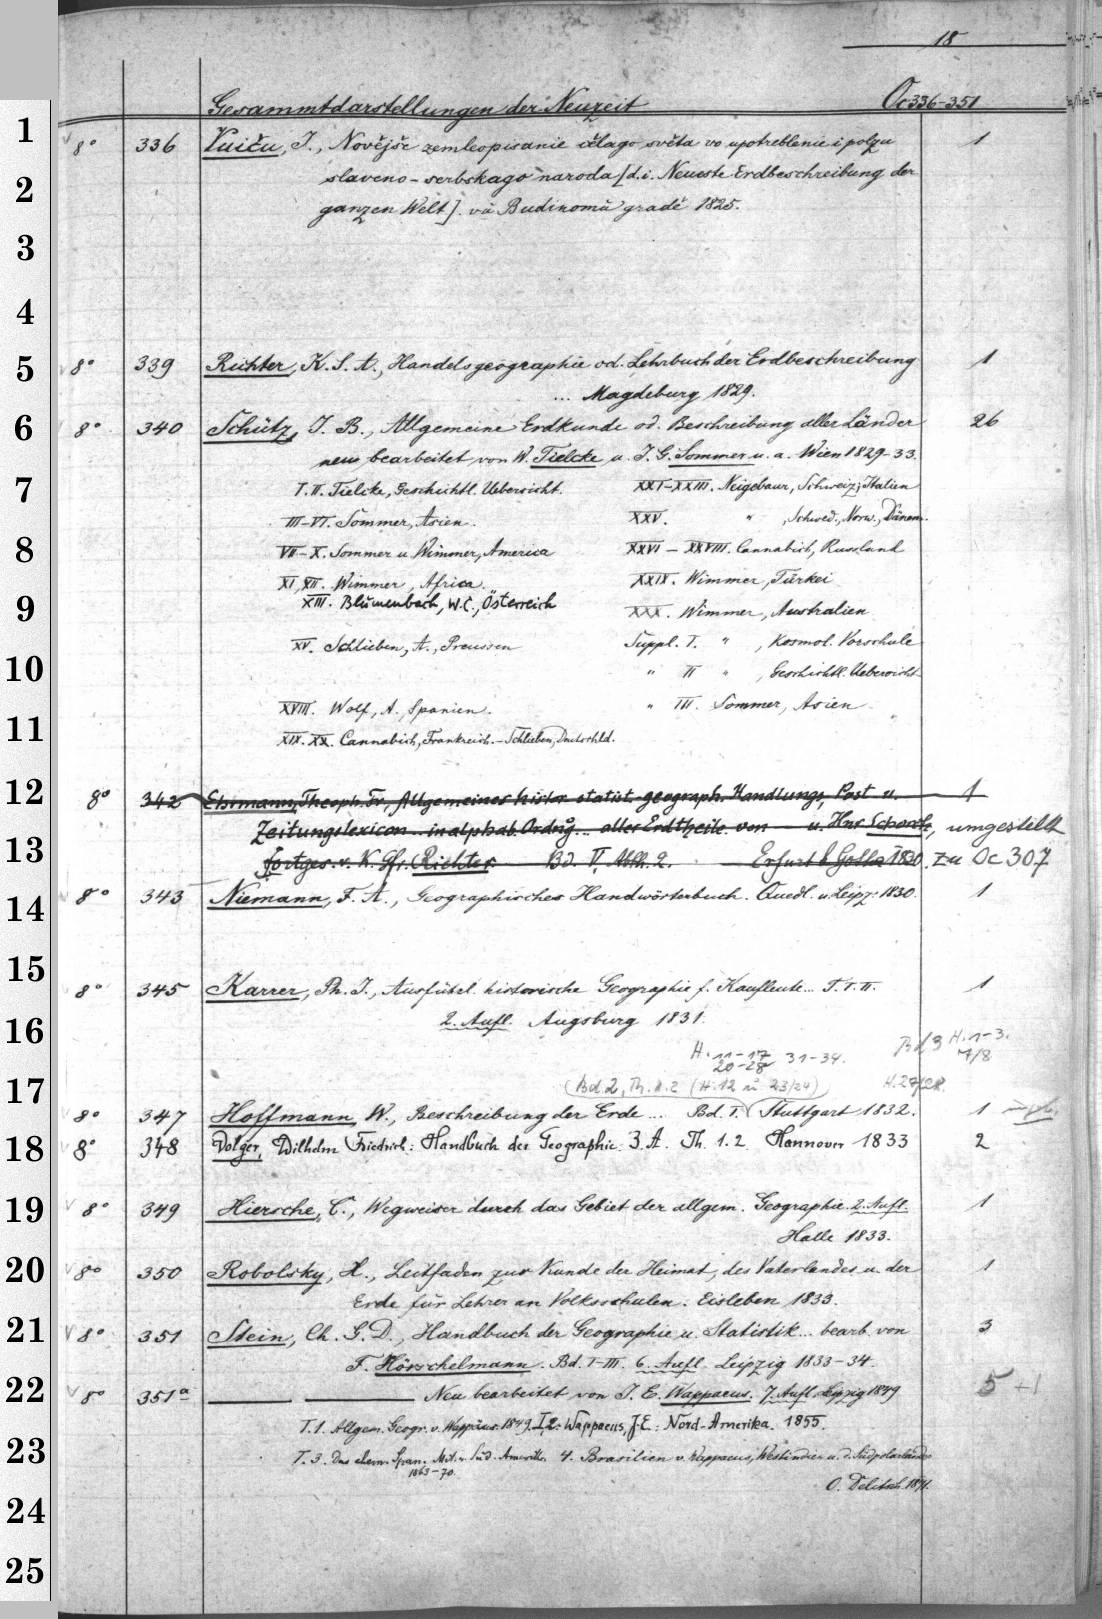 18
Gesammtdarstellungen der Neuzeit Oc 336-351
1
8° 336 Vuiču, I., Novějše zemleopisanie cělago světa vo upotreblenie i polzu 1
2
slaveno-serbskago naroda [d.i. Neueste Erdbeschreibung der
ganzen Welt]. vă Budinomă gradě 1825.
3
4
5
8° 339 Richter, K. S. A., Handelsgeographie od. Lehrbuch der Erdbeschreibung 1
... Magdeburg 1829.
6
8° 340 Schütz, I. B., Allgemeine Erdkunde od. Beschreibung aller Länder 26
neu bearbeitet von W. Tielcke u. I. G. Sommer u. a. Wien 1829-33.
7
I. II. Tielcke, Geschichtl. Uebersicht. XXI-XXIII. Neigebaur, Schweiz, Italien
III-VI. Sommer, Asien. XXV. " , Schwed., Norw., Dänem.
8
VII-X. Sommer u Wimmer, America XXVI-XXVIII. Cannabich, Russland
XI, XII. Wimmer, Africa. XXIX. Wimmer, Türkei
9
XIII. Blumenbach, W.C., Österreich XXX. Wimmer, Australien
XV. Schlieben, A., Preussen Suppl. I. " , Kosmol. Vorschule
10
" II " , Geschichtl. Uebersicht.
XVIII. Wolf, A., Spanien. " III. Sommer, Asien.
11
XIX. XX. Cannabich, Frankreich. - Schlieben, Deutschld.
12
8° 342 Ehrmann, Theoph. Fr., Allgemeines histor. statist. geograph. Handlungs, Post u. 1
Zeitungslexicon ... in alphab. Ordng. ... aller Erdtheile von u. Hnr Schorch, umgestellt
13
fortges. v. K. Fr. Richter Bd. V, Abth. 2. Erfurt & Gotha 1820. zu Oc 307
14
8° 343 Niemann, F. A., Geographisches Handwörterbuch. Quedl. u. Leipz. 1830. 1
15
8° 345 Karrer, Ph. I., Ausfühl. historische Geographie f. Kaufleute... T. I. II. 1
16
2. Aufl. Augsburg 1831.
H. 11-17 31-34. Bd 3 H. 1-3.
20-28 7/8
17
(Bd. 2, Th. II. 2 (H. 12 u 23/24) H. 27/28.
8° 347 Hoffmann, W., Beschreibung der Erde ... Bd. I. Stuttgart 1832. 1
18
8° 348 Volger, Wilhelm Friedrich: Handbuch der Geographie. 3. A. Th. 1. 2 Hannover 1833 2
19
8° 349 Hiersche, C., Wegweiser durch das Gebiet der allgem. Geographie. 2. Aufl. 1
Halle 1833.
20
8° 350 Robolsky, H., Leitfaden zur Kunde der Heimat, des Vaterlandes u. der 1
Erde für Lehrer an Volksschulen. Eisleben 1833.
21
8° 351 Stein, Ch. G. D., Handbuch der Geographie u. Statistik... bearb. von 3
F. Hörschelmann. Bd. I-III. 6. Aufl. Leipzig 1833-34.
22
8° 351a Neu bearbeitet von I. E. Wappaeus. 7. Aufl. Leipzig 1849 5 +1
I. 1. Allgem. Geogr. v. Wappäus. 1849. I,2: Wappaeus, J.E.: Nord-Amerika. 1855.
23
I. 3. Das ehem. Span. Mit.- u. Süd-Amerika. 4. Brasilien v. Wappaeus, Westindien u. d. Südpolarländer
1863-70.
O. Delitsch. 1871.
24
25